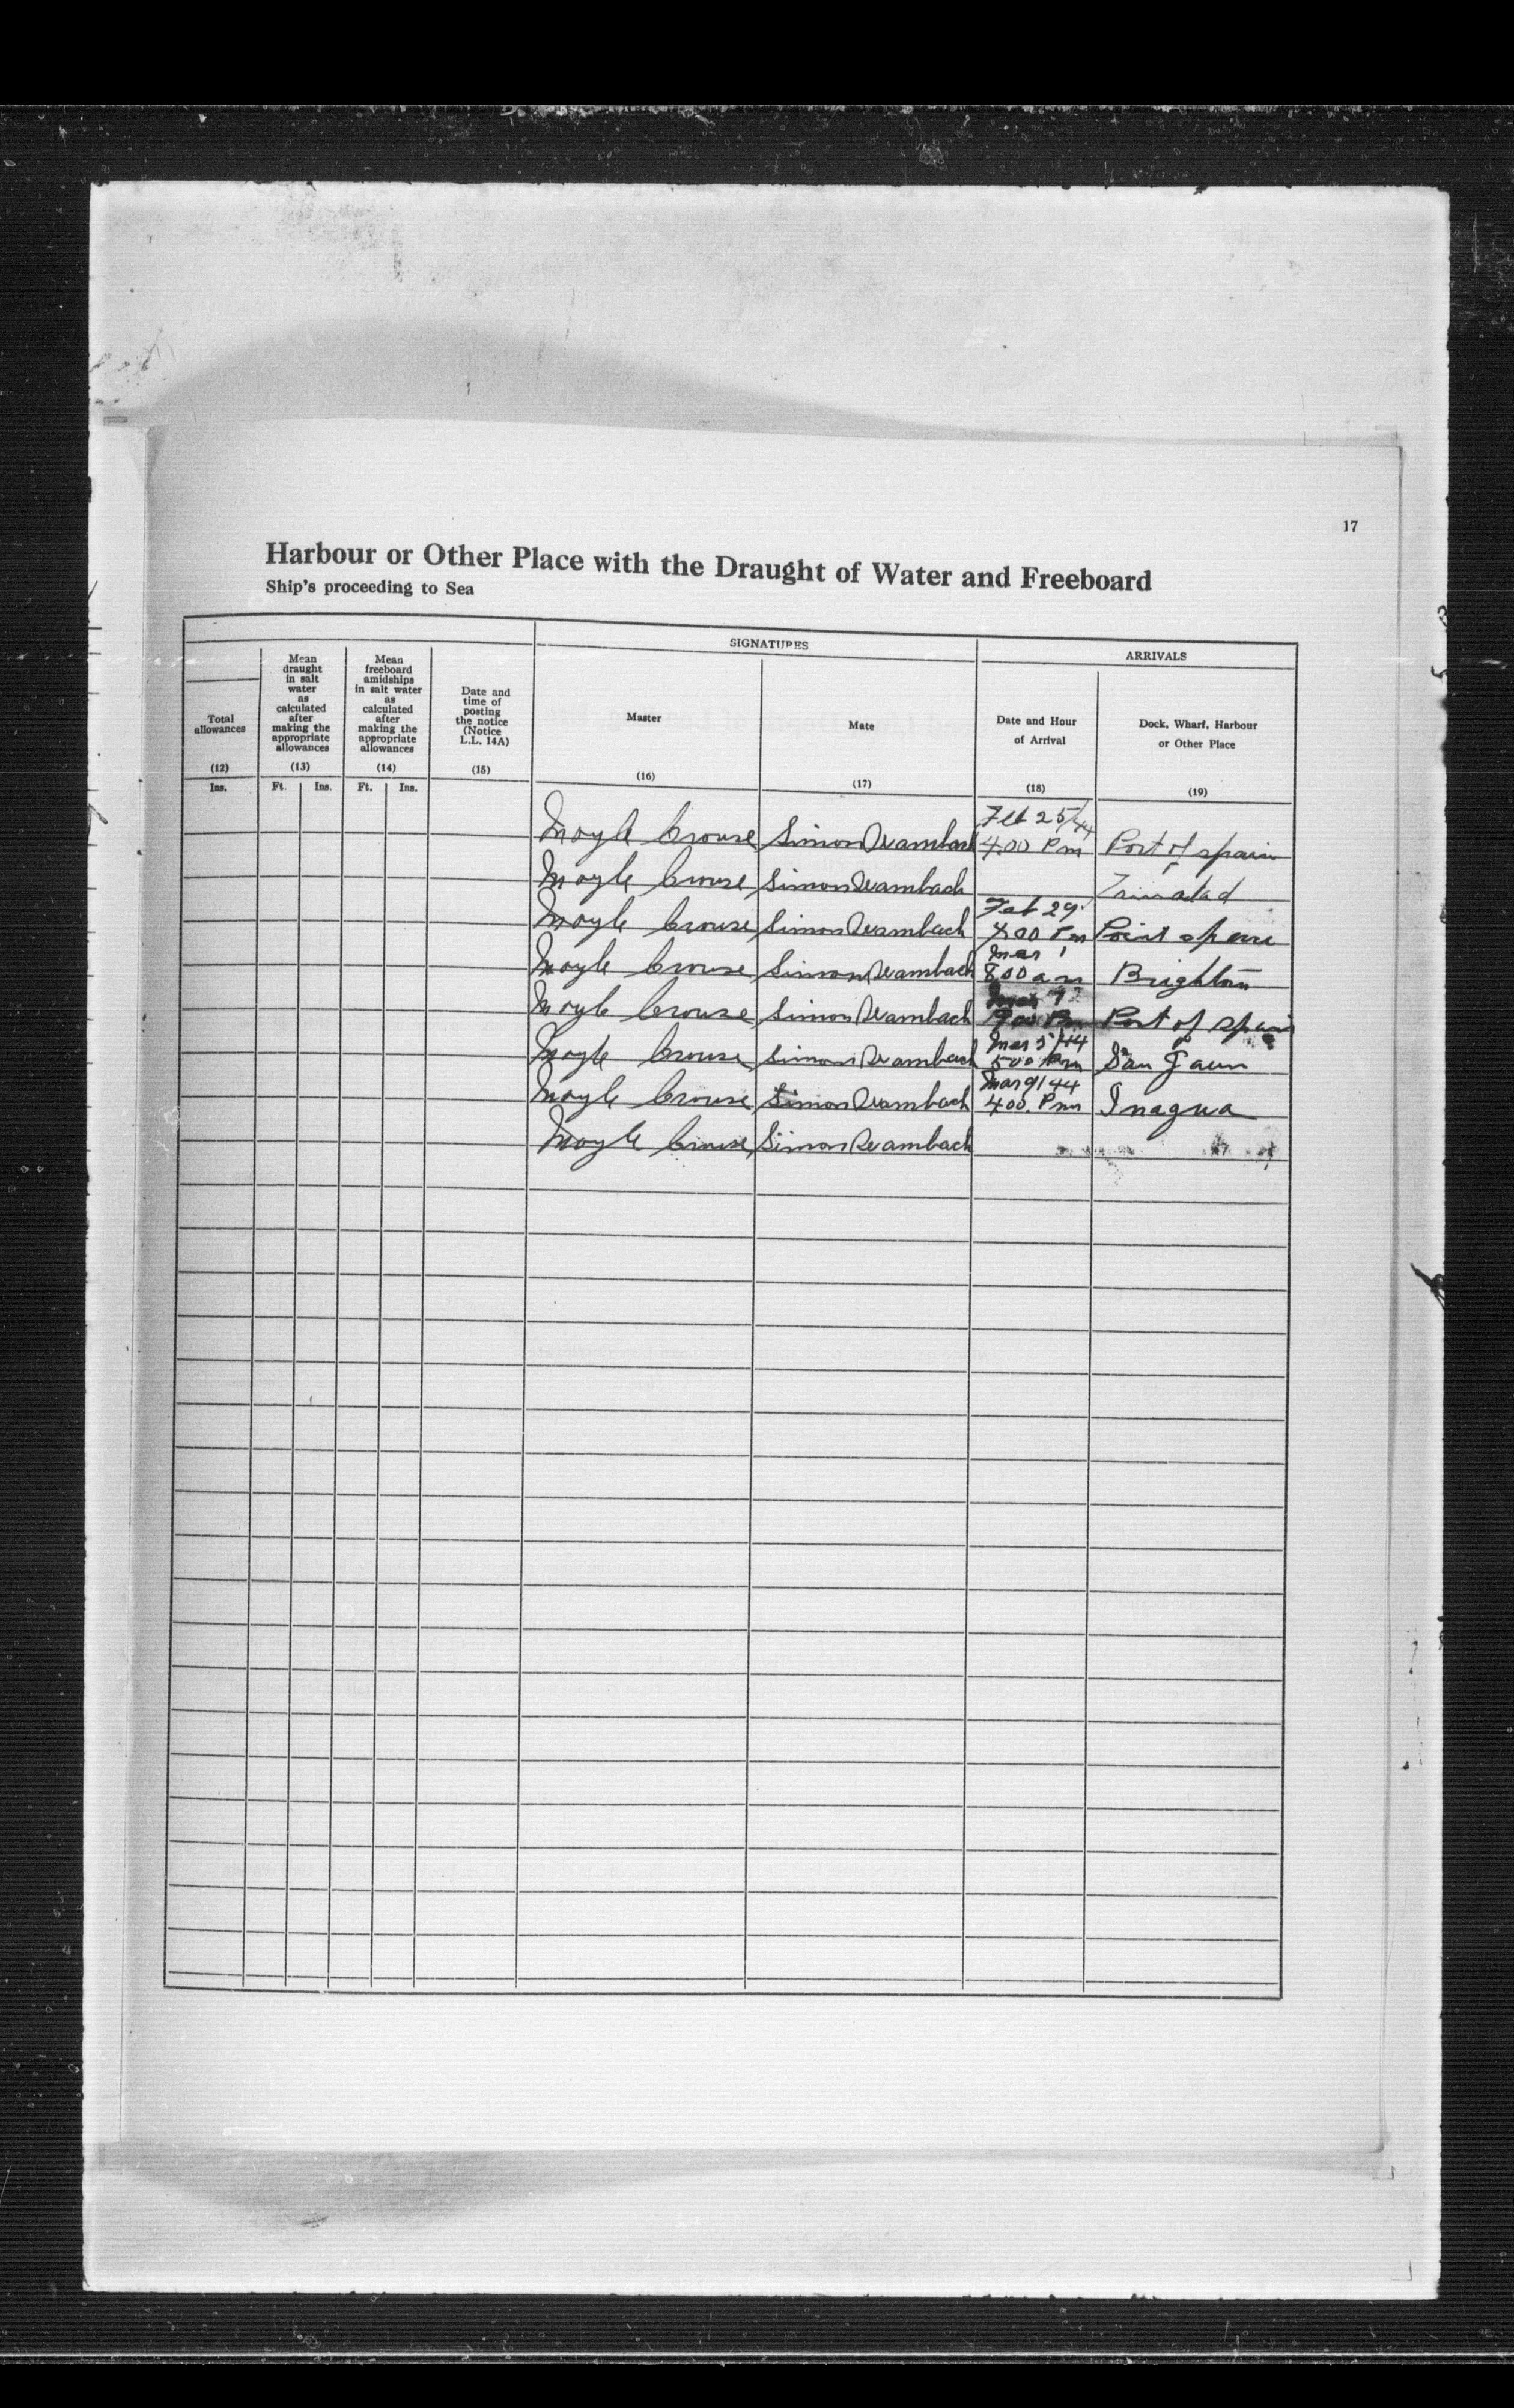 17
Harbour or Other Place with the Draught of Water and Freeboard
Ship's proceeding to Sea
SIGNATURES
ARRIVALS
Total allowances
(12)
Ins.
Mean draught in salt water as calculated after making the appropriate allowances
(13)
Ft. Ins.
Mean freeboard amidships in salt water as calculated after making the appropriate allowances
(14)
Ft. Ins.
Date and time of posting the notice (Notice L.L. 14A)
(15)
Master
(16)
Mate
(17)
Date and Hour of Arrival
(18)
Dock, Wharf, Harbour or Other Place
(19)
Moyle Crouse Simon Wambach Feb 25/44 4.00 Pm Port of spain
Moyle Crouse Simon Wambach Trinadad
Moyle Crouse Simon Wambach Feb 29 4.00 Pm Point
Moyle Crouse Simon Wambach Mar 1 8.00 am Brighton
Moyle Crouse Simon Wambach Port of spain
Moyle Crouse Simon Wambach Mar 5/44 5.00 San Jaun
Moyle Crouse Simon Wambach Mar 9/44 4.00. Pm Inagua
Moyle Crouse Simon Wambach